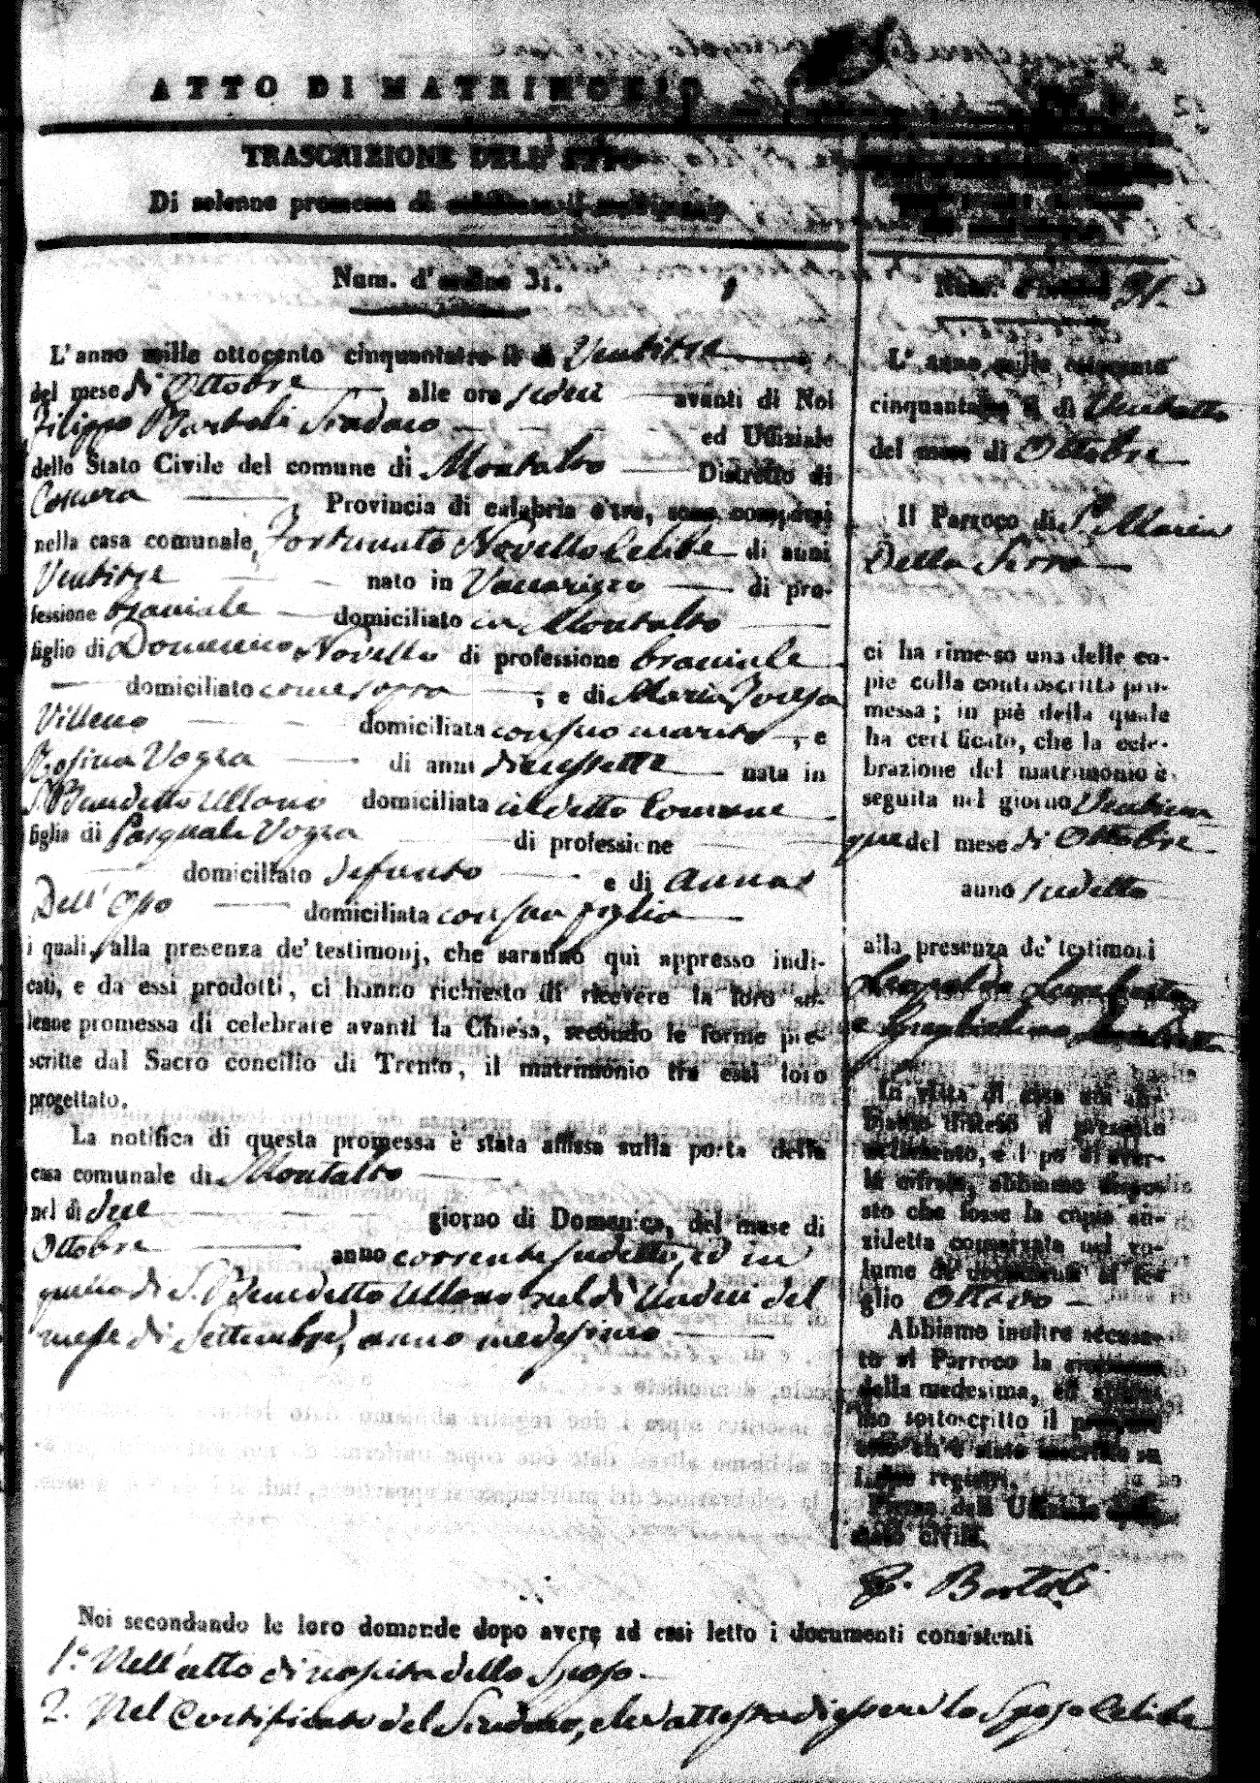 ATTO DI MATRIMONIO
TRASCRIZIONE DELL' ATTO
Di solenne promessa di celebrare il matrimonio
Num. d'ordine 31.
L'anno mille ottocento cinquantatre il dì Ventitre
del mese di Ottobre alle ore sedici avanti di Noi
Filippo Bartoli Sindaco ed Uffiziale
dello Stato Civile del comune di Montalto Distretto di
Cosenza Provincia di calabria citra, sono comparsi
nella casa comunale Fortunato Novello Celibe di anni
Ventitre nato in Vaccarizzo di pro-
fessione bracciale domiciliato in Montalto
figlio di Domenico Novello di professione bracciale
domiciliato come sopra ; e di Maria Teresa
Villeno domiciliata con suo marito , e
Rosina Vogra di anni diciassette nata in
S. Benedetto Ullano domiciliata in detto Comune
figlia di Pasquale Vogra di professione
domiciliato defunto e di Anna
Dell' domiciliata con sua figlia
i quali, alla presenza de' testimonj, che saranno quì appresso indi-
cati, e da essi prodotti, ci hanno richiesto di ricevere la loro so-
lenne promessa di celebrare avanti la Chiesa, secondo le forme pre-
scritte dal Sacro concilio di Trento, il matrimonio tra essi loro
progettato.
La notifica di questa promessa è stata affissa sulla porta della
casa comunale di Montalto
nel dì due giorno di Domenica, del mese di
Ottobre anno corrente sudetto, ed in
quella di S. Benedetto Ullano nel dì Undici del
mese di Settembre, anno medesimo
Num. d'ordine 31.
L' anno mille ottocento
cinquantatre il dì Ventotto
del mese di Ottobre
Il Parroco di S. Maria
Della Serra
ci ha rimesso una delle co-
pie colla controscritta pro-
messa; in piè della quale
ha certificato, che la cele-
brazione del matrimonio è
seguita nel giorno Venticin
que del mese di Ottobre
anno sudetto
alla presenza de' testimoni
In vista di essa noi ab-
biamo disteso il presente
notamento, e dopo di aver-
la cifrata, abbiamo dispo-
sto che fosse la copia an-
zidetta conservata nel vo-
lume de' documenti al fo-
glio Ottavo
Abbiamo inoltre accusa-
to al Parroco la ricezione
della medesima, ed abbia-
mo sottoscritto il presente
atto ch'è stato inscritto su
i due registri.
Firma dell' Uffiziale dello
stato civile.
F. Bartoli
Noi secondando le loro domande dopo avere ad essi letto i documenti consistenti
1.° Nell'atto di nascita dello Sposo
2. Nel Certificato del Sindaco, che attesta di essere lo Sposo Celibe